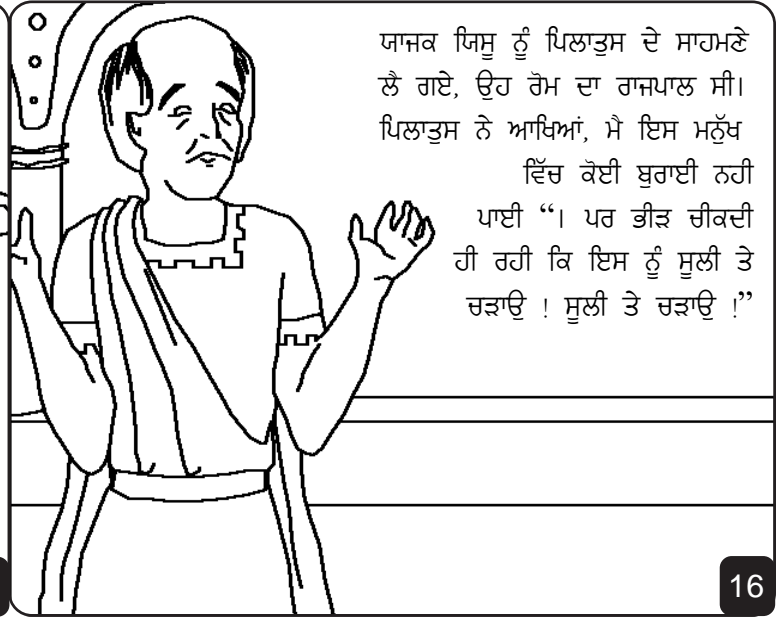 ਯਾਜਕ ਯਿਸੂ ਨੂੰ ਪਿਲਾਤੁਸ ਦੇ ਸਾਹਮਣੇ
ਲੈ ਗਏ, ਉਹ ਰੋਮ ਦਾ ਰਾਜਪਾਲ ਸੀ।
ਪਿਲਾਤੁਸ ਨੇ ਆਖਿਆਂ, ਮੈ ਇਸ ਮਨੁੱਖ
ਵਿੱਚ ਕੋਈ ਬੁਰਾਈ ਨਹੀ
ਪਾਈ “। ਪਰ ਭੀੜ ਚੀਕਦੀ
ਹੀ ਰਹੀ ਕਿ ਇਸ ਨੂੰ ਸੂਲੀ ਤੇ
ਚੜਾਉ ! ਸੂਲੀ ਤੇ ਚੜਾਉ !”
16